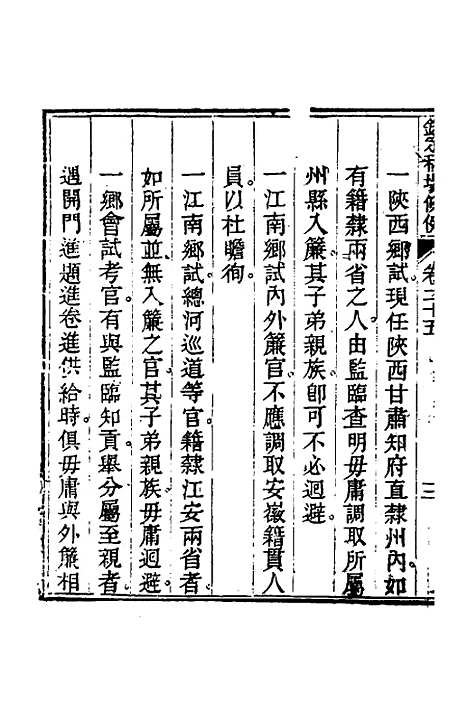 欽定科場條例 卷二十五 三
一陝西鄉試現任陝西甘肅知府直隸州內如
有籍隸兩省之人由監臨查明毋庸調取所屬
州縣入簾其子弟親族卽可不必迴避
一江南鄉試內外簾官不應調取安徽籍貫人
員以杜瞻徇
一江南鄉試總河巡道等官籍隸江安兩省者
如所屬並無入簾之官其子弟親族毋庸迴避
一鄉會試考官有與監臨知貢舉分屬至親者
遇開門進題進卷進供給時俱毋庸與外簾相